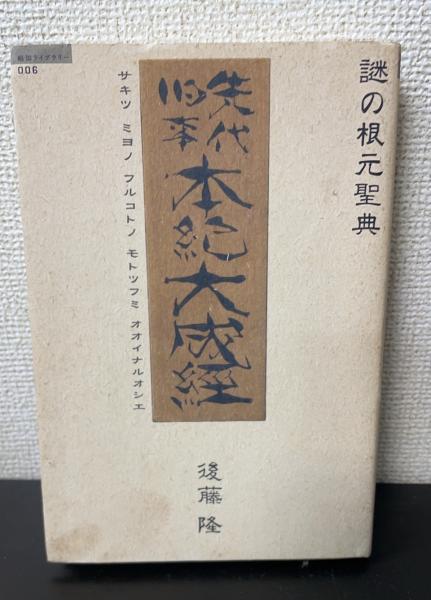 謎の根元聖典
先代
旧事
本紀大成経
サキツ ミヨノ フルコトノ モトツフミ オオイナルオシエ
後藤隆
006